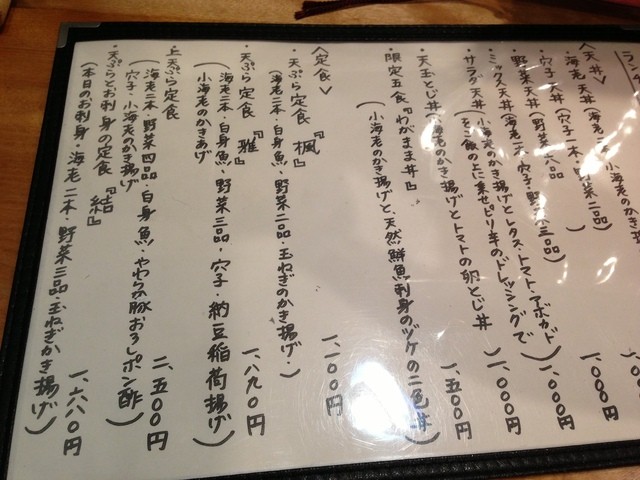 ラン
小海老のかき揚
〈天丼〉
・海老天丼(海老二本・野菜二品)
一、000円
・穴子天丼(穴子一本・
一、000円
・野菜天丼(野菜六品)
・ミックス天丼(海老二本・穴子・野菜三品)
一、000円
・サラダ天丼(小海老のかき揚げとレタス・トマト・アボカド
をご飯の上に乗せピリ辛のドレッシングで)
一、000円
・天玉とじ丼(小海老のかき揚げとトマトの卵とじ丼
一、五00円
限定五食『わがまま丼』
(小海老のかき揚げと天然鮮魚刺身のヅケの二色丼)
〈定食〉
・天ぷら定食『楓』
一、一00円
(海老二本・白身魚、野菜二品・玉ねぎのかき揚げ・)
天ぷら定食『雅』
一、八九0円
(海老二本・白身魚、野菜三品・穴子・納豆稲荷揚げ
小海老のかきあげ)
上天ぷら定食
二、五00円
(海老二本・野菜四品・白身魚・やわらか豚おろしポン酢
穴子・小海老のかき揚げ)
・天ぷらとお刺身の定食『結』
一、六八0円
(本日のお刺身・海老二本・野菜三品・玉ねぎかき揚げ)